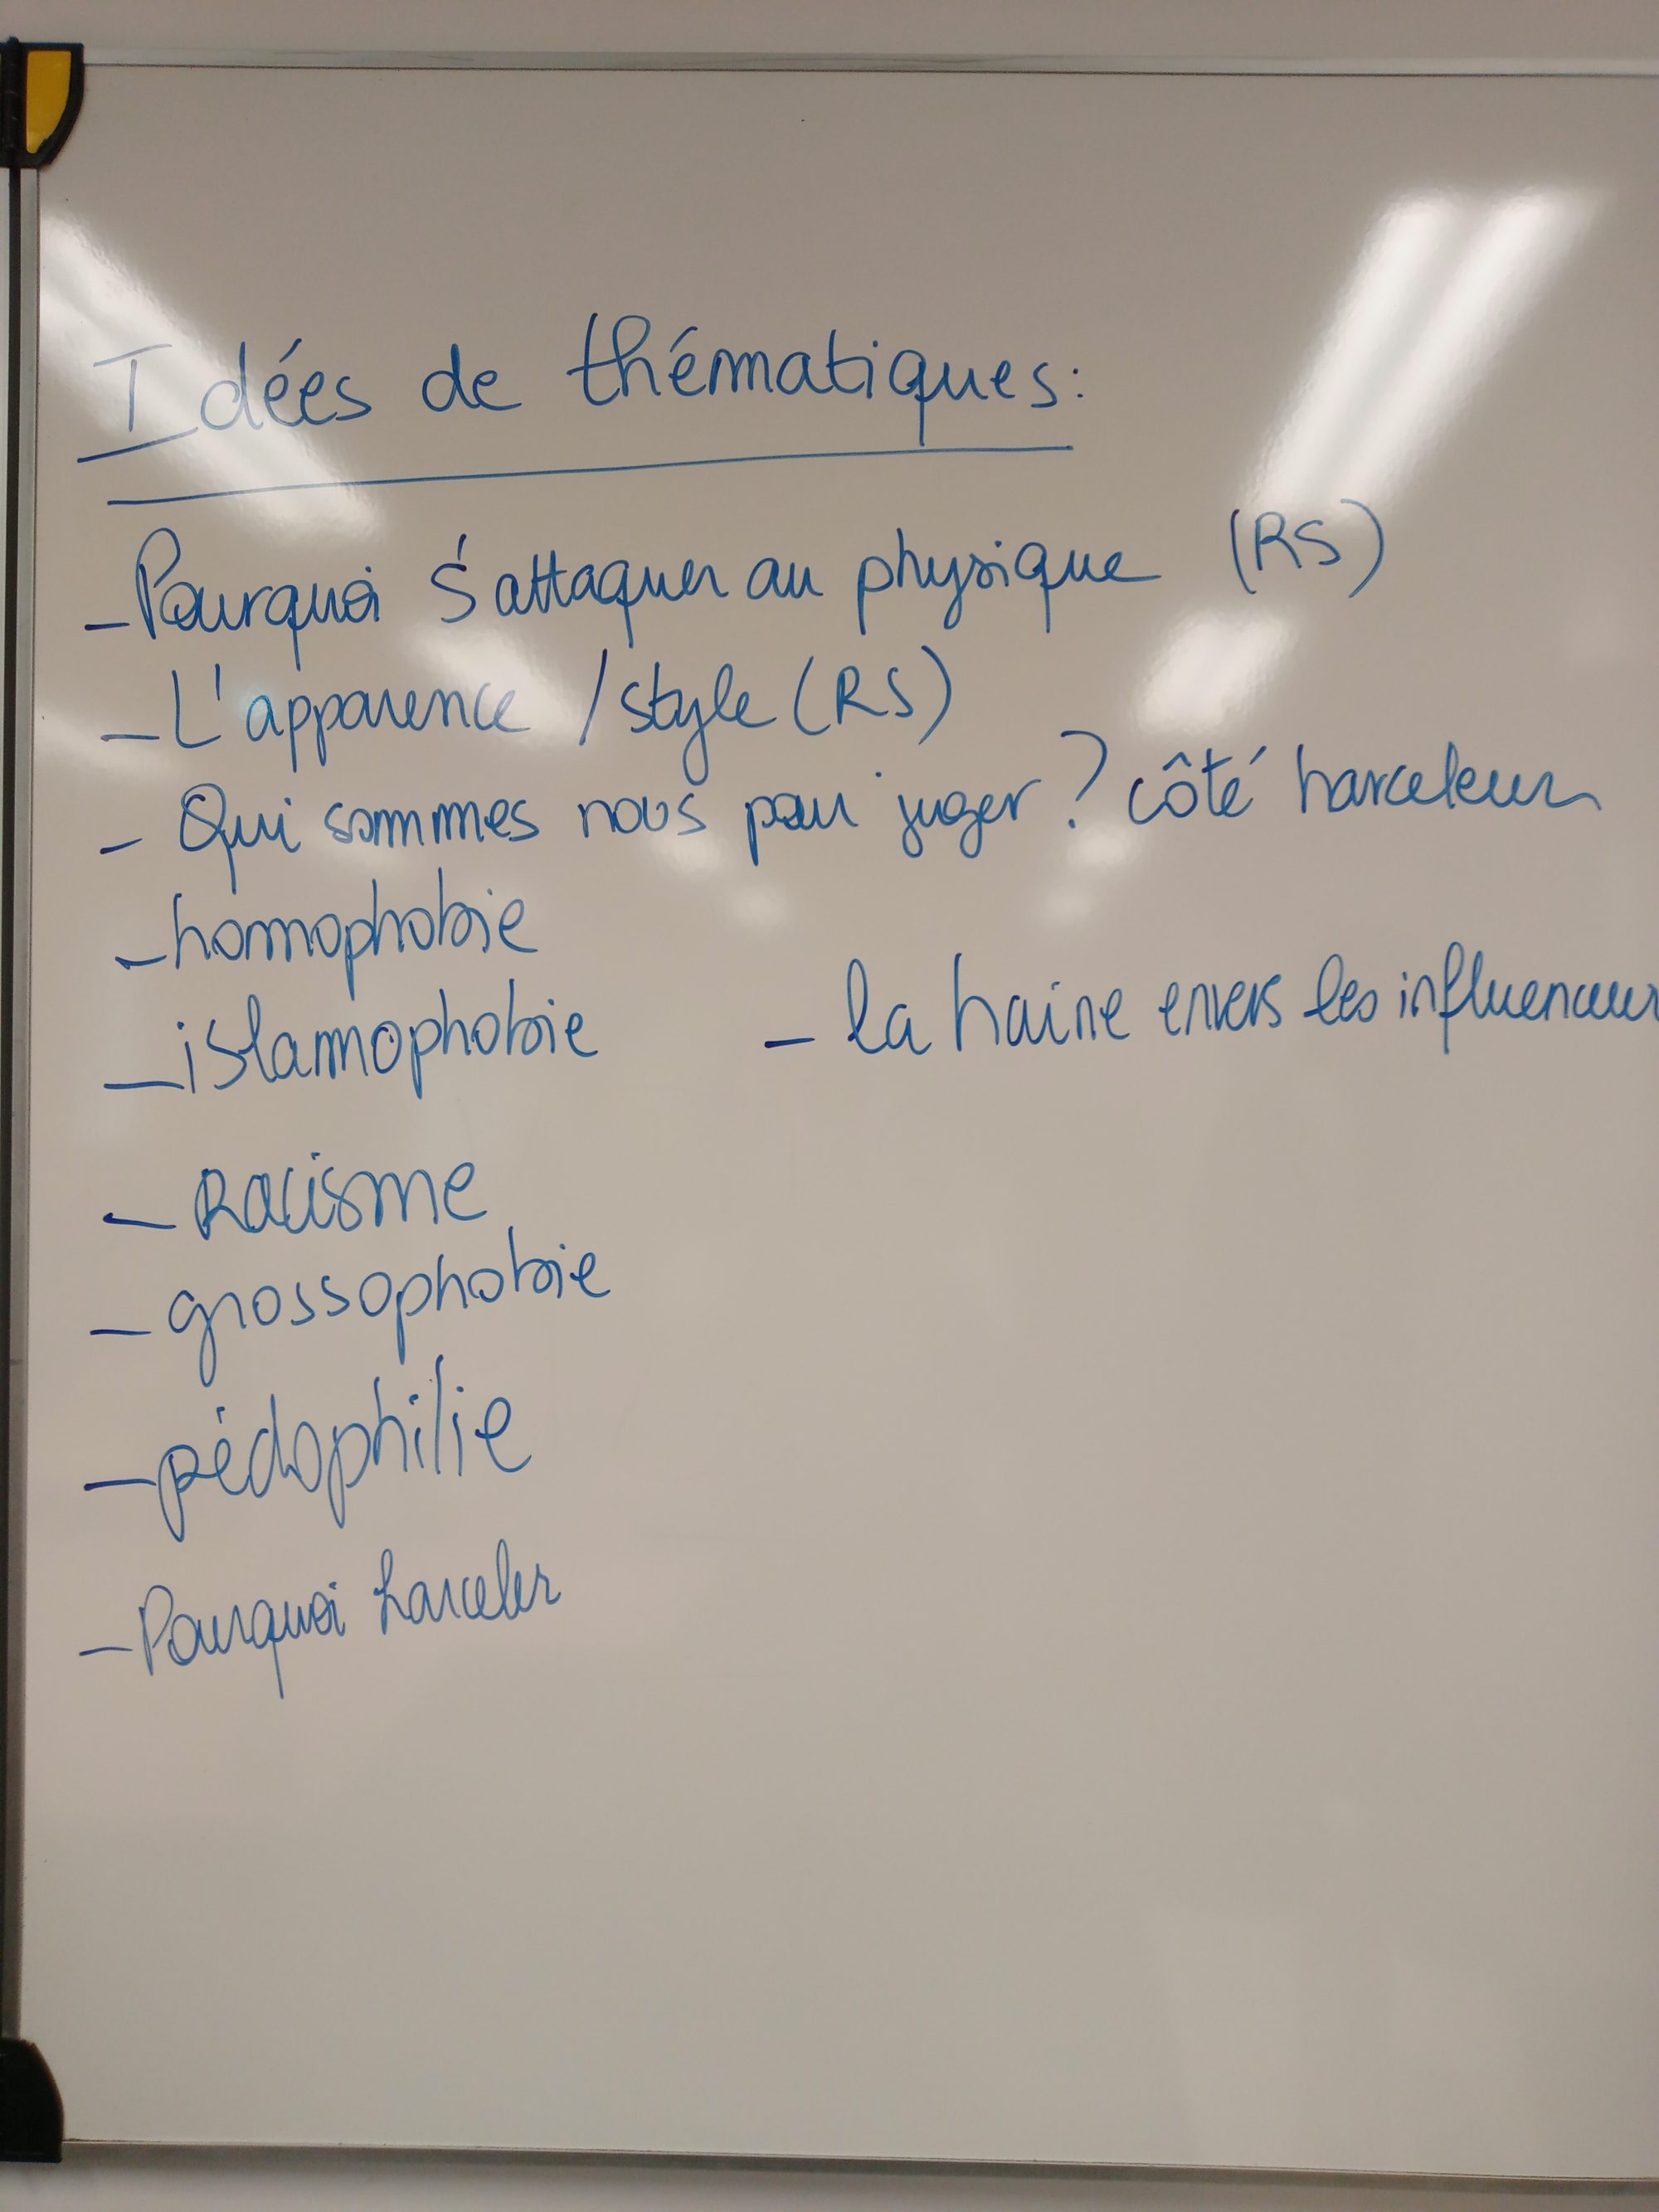 Idées de thématiques:
- Pourquoi s'attaquer au physique (RS)
- L'apparence / style (RS)
- Qui sommes nous pour juger ? côté harceleur
- homophobie
- islamophobie
- la haine envers les influenceur
- Racisme
- grossophobie
- pédophilie
- Pourquoi harceler